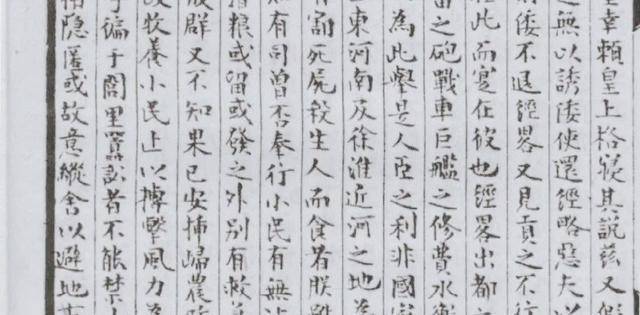 幸賴皇上格寢其說茲又
之無以誘倭使還經略惡夫以
倭不退經畧又見貢之不行
此而寔在彼也經畧出都
之砲戰車巨艦之修費水衡
為此舉是人臣之利非國
東河南及徐淮近河之地
有割死屍殺生人而食者朕
有司曾否奉行小民有無
粮或留或發之外別有救
群又不知果已安插歸農
收養小民上以搏擊風力
徧于閭里嚚訟者不能禁
隱匿或故意縱舍以避地